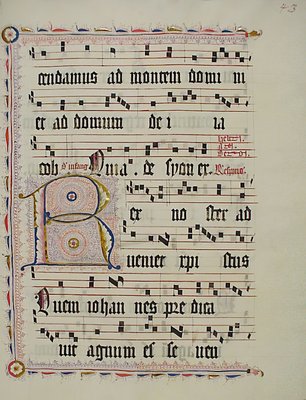 43
cendamus ad montem domi ni
et ad domum de i ia
cob Quia . de syon ex. Respons
R ex no ster ad
ueniet xpi stus
Quem iohan nes pre dica
uit agnum es se uen